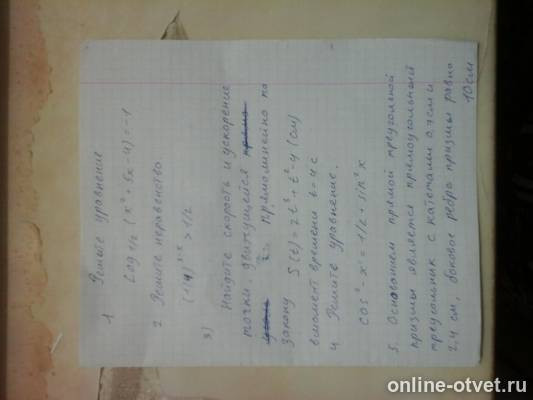 1 Решите уравнение
Log 1/2 (x² + 5x - 4) = -1
2 Решите неравенство
(1/4)²⁻ˣ > 1/2
3) Найдите скорость и ускорение
точки движущейся
прямолинейно по
закону S(t) = 2t³ + t² - 4 (см)
в момент времени t = 4 с
4 Решите уравнение.
cos² - x = 1/2 + sin² x
5. Основанием прямой треугольной
призмы является прямоугольный
треугольник с катетами 0,7см и
2,4 см, боковое ребро призмы равно
10 см
online-otvet.ru